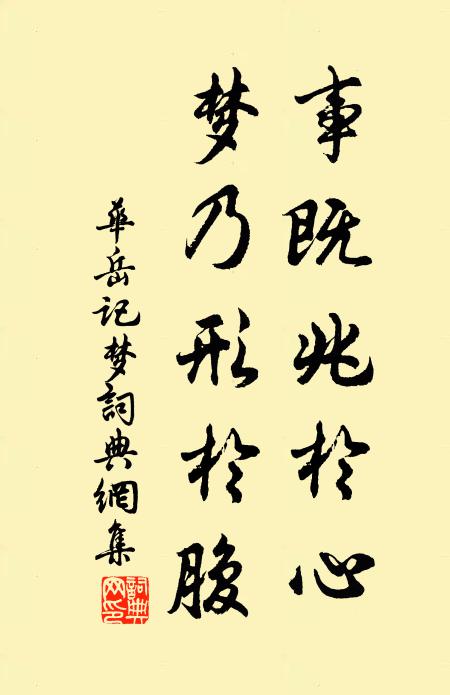 事既兆於心
梦乃形於腹
華岳记梦詞典網集
詞典网印